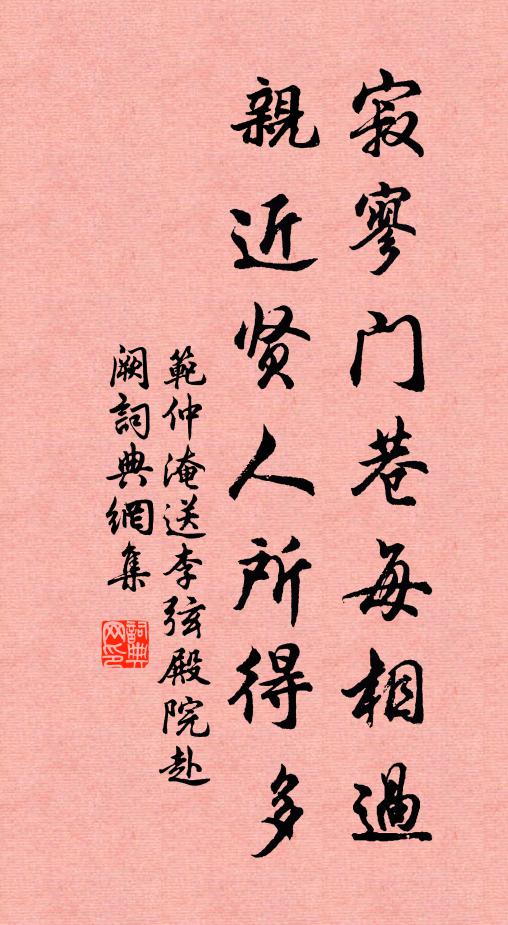 寂寥门巷每相過
親近贤人所得多
範仲淹送李弦殿院赴
阙詞典網集
詞典
网印